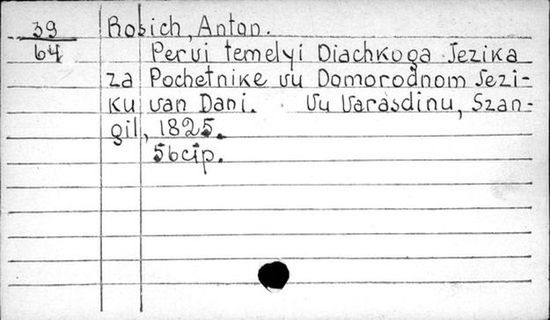 39 Rosich, Anton.
64 Pervi temelyi Diachkoga Jezika
za Pochetnike vu Domorodnom Jezi-
ku van Dani. Vu Varasdinu, Szan-
gil, 1825.
56 cip.